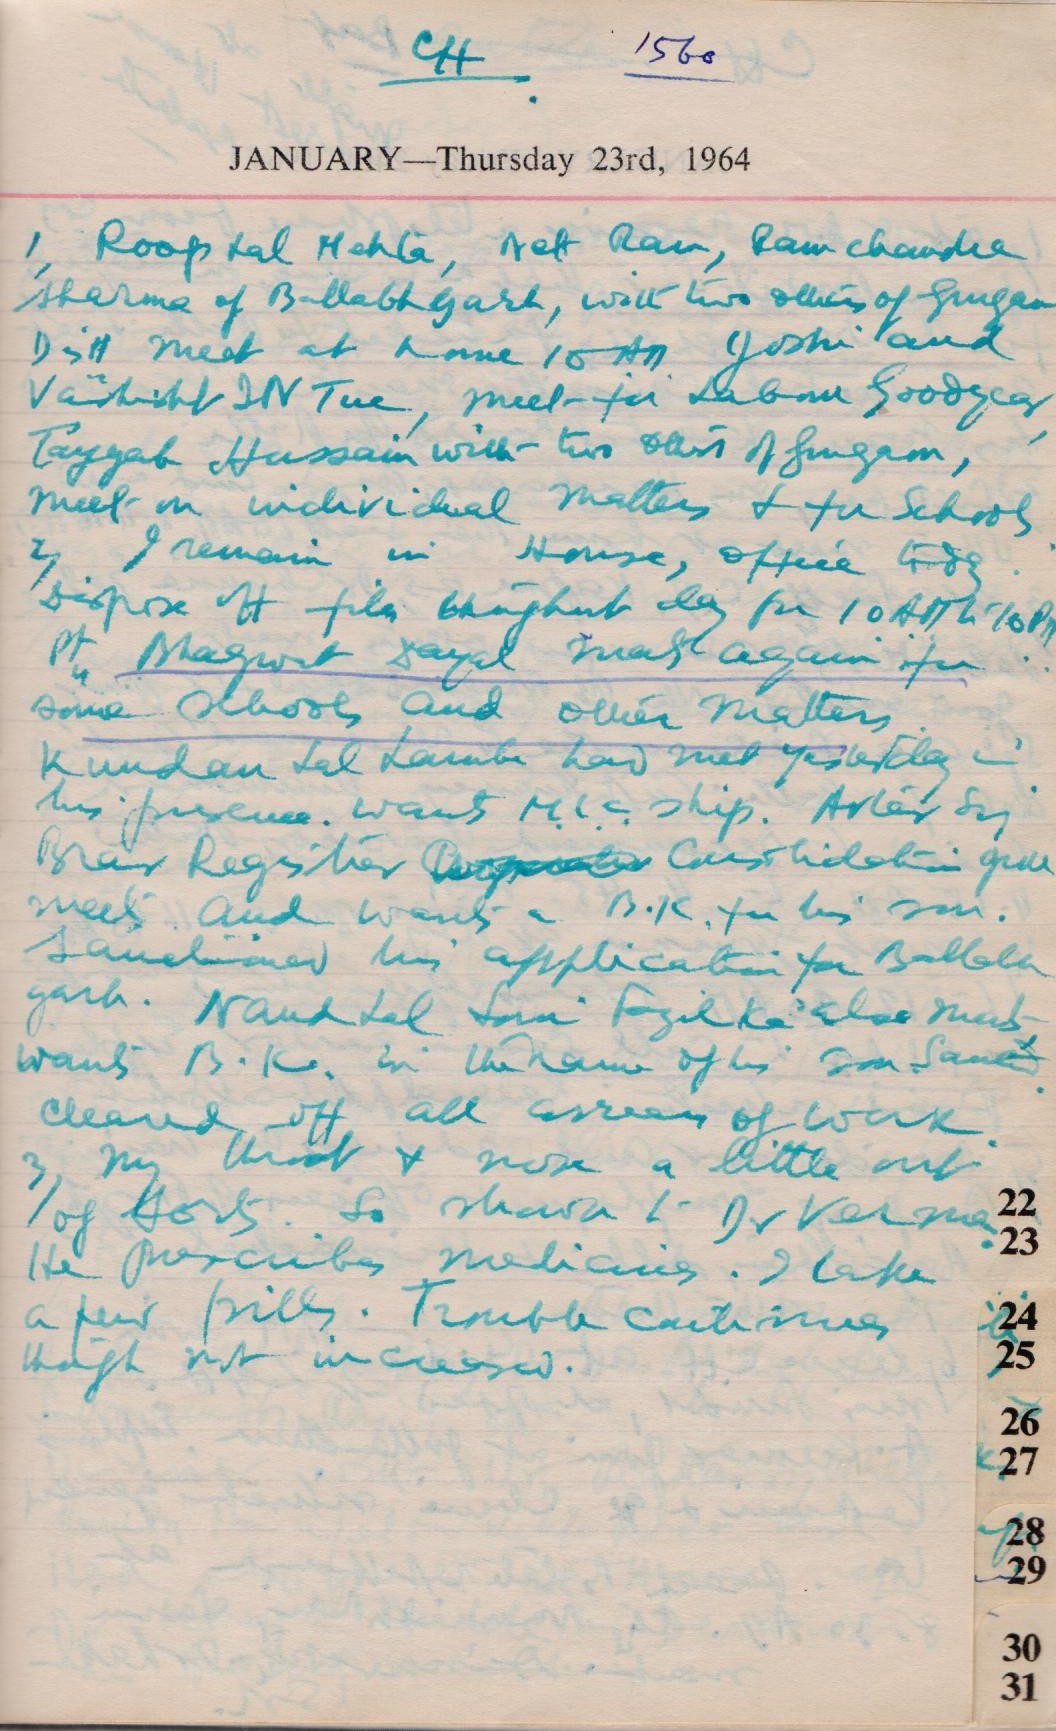 CH 1560
JANUARY—Thursday 23rd, 1964
1, Roop Lal Mehta, Net Ram, Ram chandra
Sharma of Ballabhgarh, with two others of Gurgaon
Distt meet at home 10 AM Joshi and
Vashisht INTUC, meet for Labour Goodyear,
Tayyab Hussain with two others of Gurgaon,
meet on individual matters & for Schools
2, I remain in House, office today.
Dispose off files throughout day for 10 AM to 10 PM
Pt. Bhagwat Dayal meets again for
some schools and other matters.
Kundan Lal Lamba had met yesterday in
his presence. wants M.L.C. ship.
Registrar Consolidation
meets and wants a B.K. for his son.
Sanctioned his application for Ballabh
garh. Nand Lal Soni Fazilka also meets
wants B.K. in the name of his son.
cleared off all arrears of work.
3, My throat & nose a little out
of sorts. So shown to Dr Verma
He prescribes medicines. I take
a few pills. Trouble continues
though not increased.
22
23
24
25
26
27
28
29
30
31